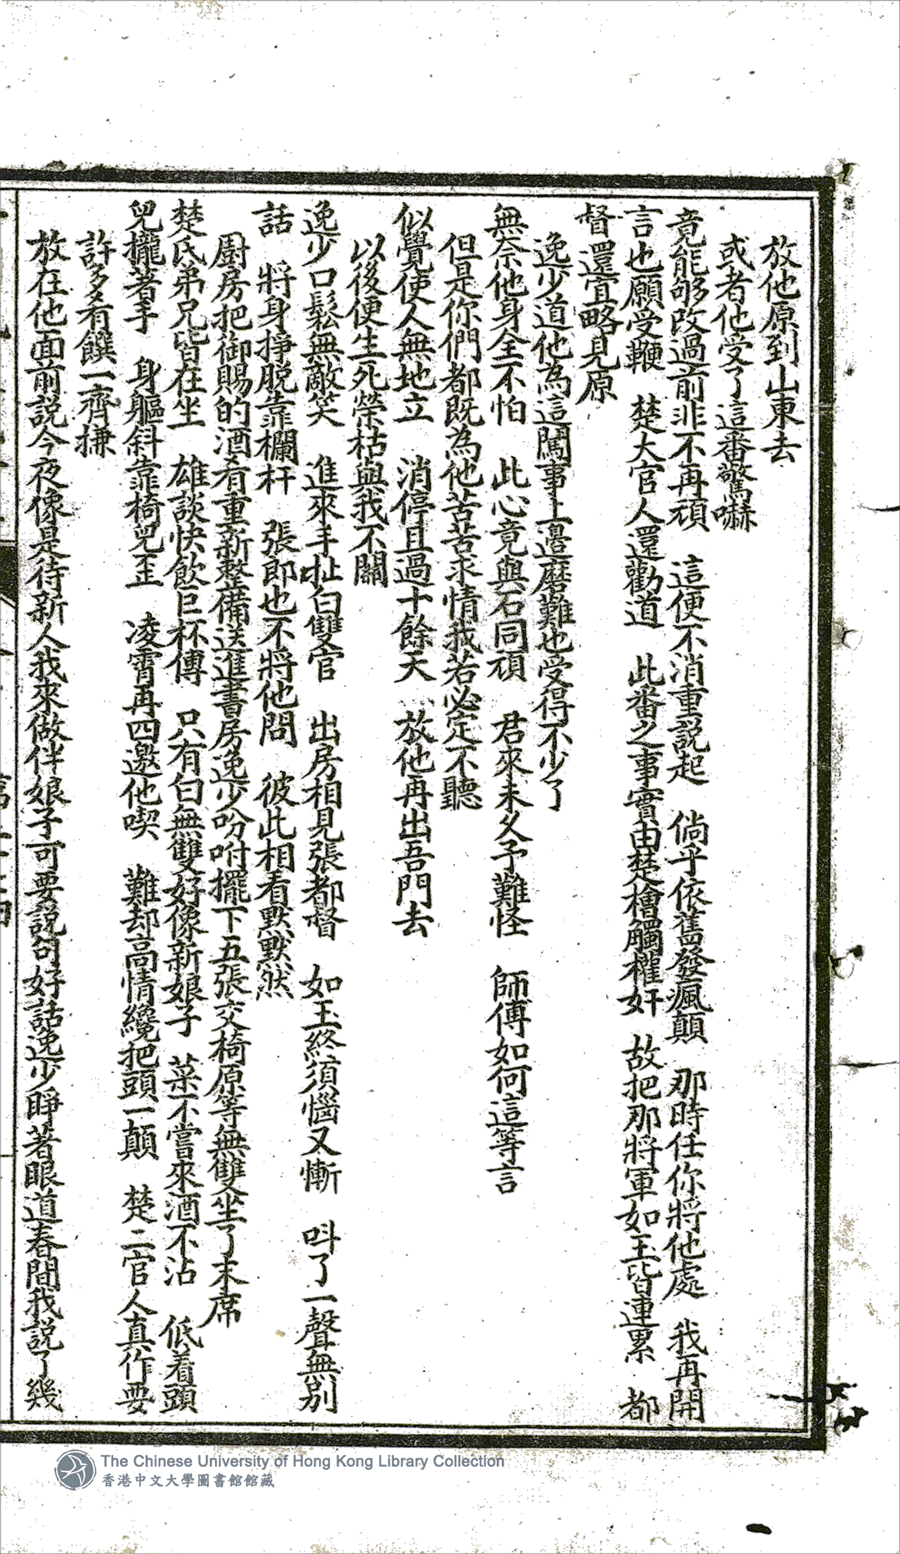 放他原到山東去
或者他受了這番驚嚇
竟能够改過前非不再頑　這便不消重説起　倘乎依舊發瘋顛　那時任你將他處　我再開
言也願受鞭　楚大官人還勸道　此番之事實由楚檜觸權奸　故把那將軍如玉皆連累　都
督還宜略見原
逸少道他為這闖事上邉磨難也受得不少了
無奈他身全不怕　此心竟與石同頑　君來未久予難怪　師傅如何這等言
但是你們都既為他苦苦求情我若必定不聽
似覺使人無地立　消停且過十餘天　放他再出吾門去
以後便生死榮枯與我不關
逸少口鬆無敵笑　進來手扯白雙官　出房相見張都督　如玉終須惱又慚　呌了一聲無别
話　將身掙脱靠欄杆　張郎也不將他問　彼此相看默默然
厨房把御賜的酒肴重新整備送進書房逸少吩咐擺下五張交椅原等無雙坐了末席
楚氏弟兄皆在坐　雄談快飲巨杯傳　只有白無雙好像新娘子　菜不嘗來酒不沾　低着頭
兒攏著手　身軀斜靠椅兒圭　凌霄再四邀他喫　難却高情纔把頭一顛　楚二官人真作耍
許多肴饌一齊搛
放在他面前説今夜像是待新人我來做伴娘子可要説句好話逸少睜著眼道春間我説了幾
The Chinese University of Hong Kong Library Collection
香港中文大學圖書館館藏